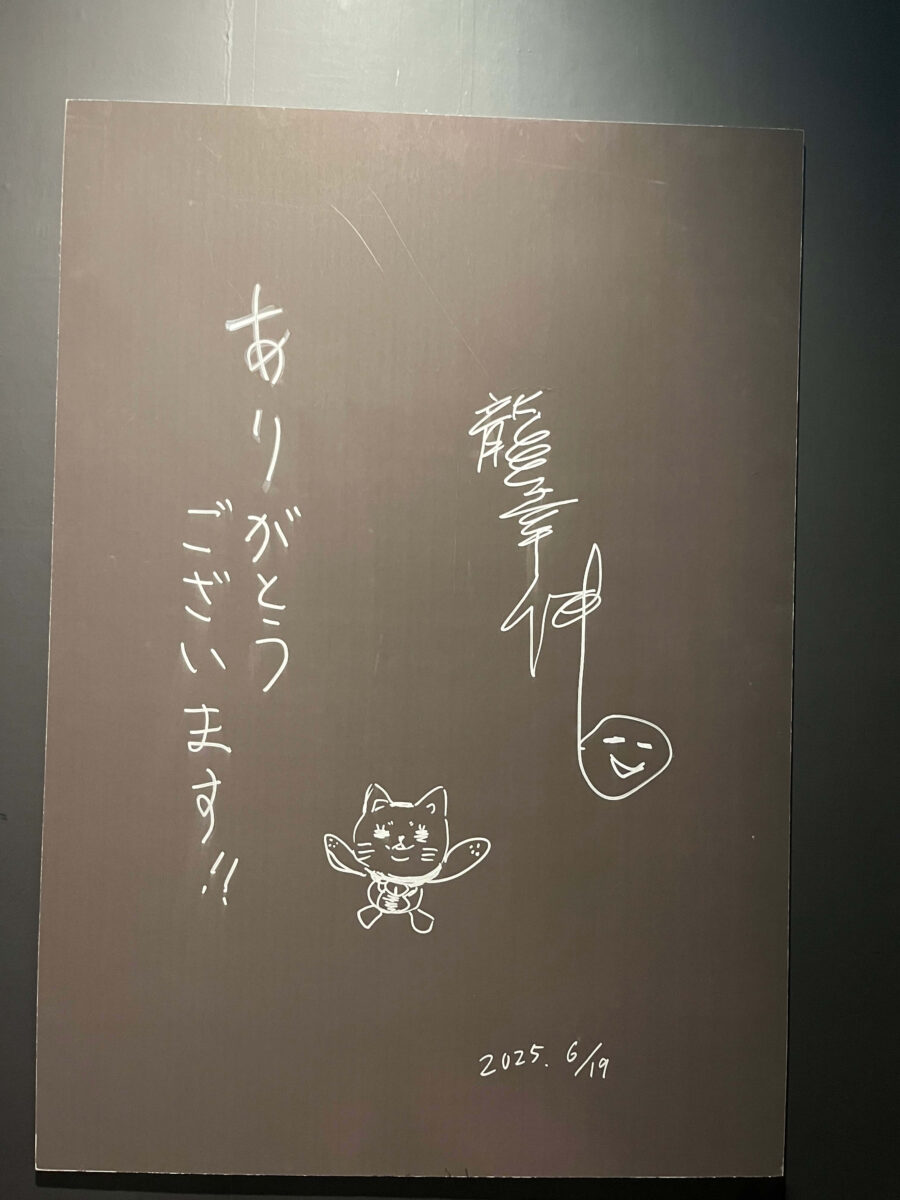 龍幸伸
ありがとう
ございます!!
2025. 6/19